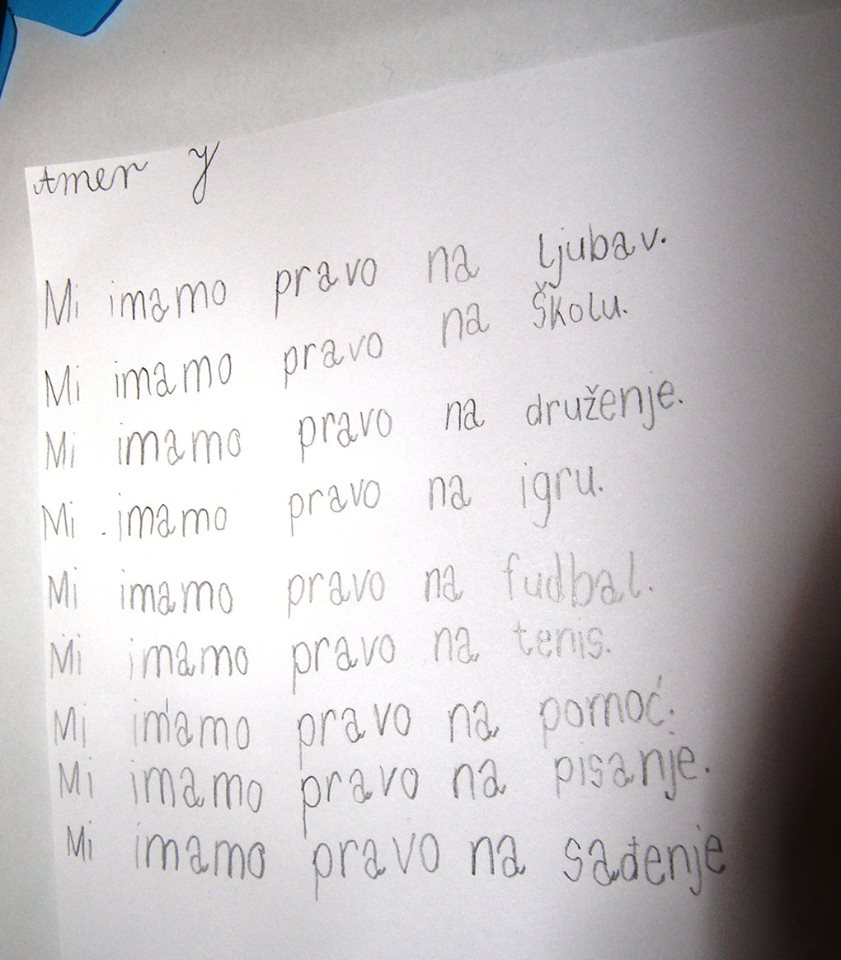 Amer Y
Mi imamo pravo na ljubav.
Mi imamo pravo na školu.
Mi imamo pravo na druženje.
Mi imamo pravo na igru.
Mi imamo pravo na fudbal.
Mi imamo pravo na tenis.
Mi imamo pravo na pomoć.
Mi imamo pravo na pisanje.
Mi imamo pravo na sađenje